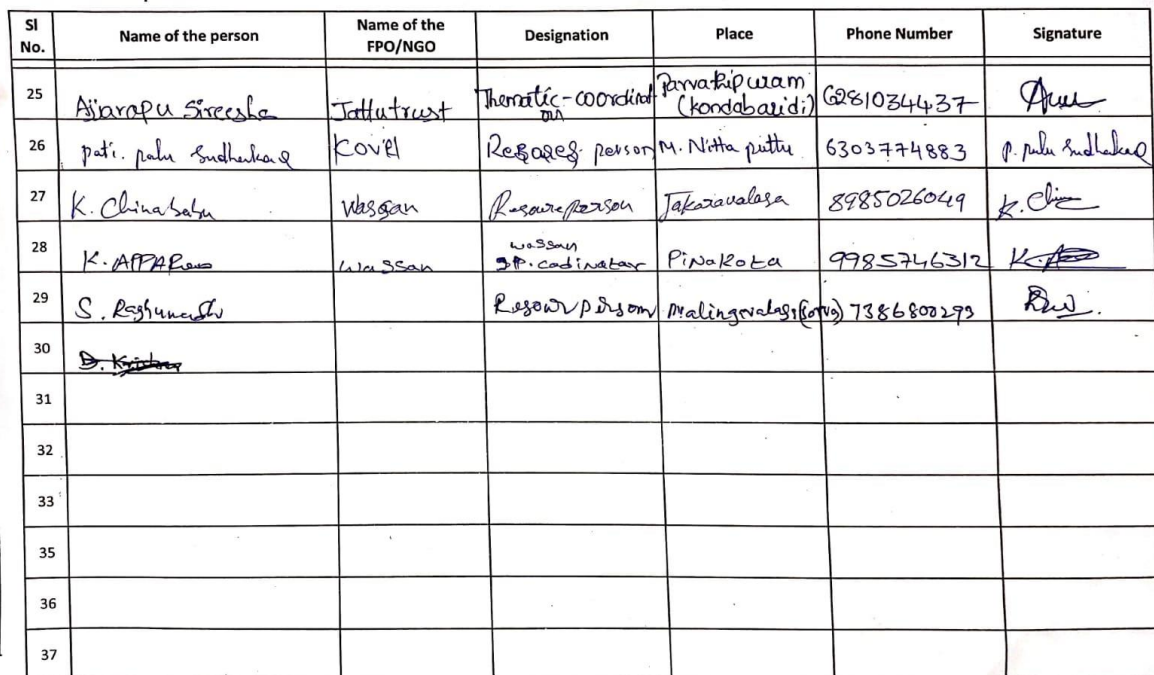 Sl No. Name of the person Name of the FPO/NGO Designation Place Phone Number Signature
25 Ajjarapu Sireesha Jattutrust Thematic-coordinat on Parvathipuram (kondabaridi) 6281034437
26 pati. palu Sudhakar Kovel person M. Nitta puttu 6303774883 P. palu Sudhakar
27 K. Chinababu Wassan Resource person Jakaravalasa 8985026049 K. Chin
28 K. APPARao Wassan wassan SP. codinatar PiNaKota 9985746312
29 S. Raghunadh Resour person 7386800293
30 D. Krishna
31
32
33
35
36
37